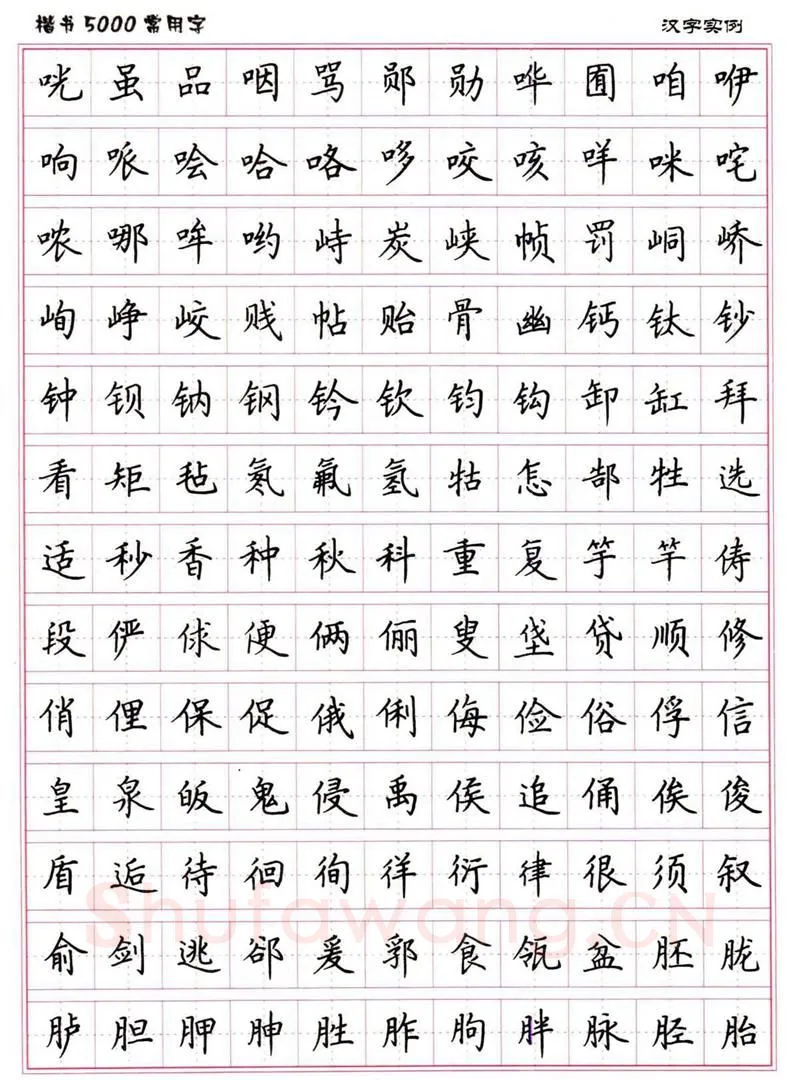 楷书5000常用字 汉字实例
咣虽品咽骂郧勋哗囿咱咿
响哌哙哈咯哆咬咳咩咪咤
哝哪哞哟峙炭峡帧罚峒峤
峋峥峧贱帖贻骨幽钙钛钞
钟钡钠钢钤钦钧钩卸缸拜
看矩毡氡氟氢牯怎郜牲选
适秒香种秋科重复竽竿俦
段俨俅便俩俪叟垡贷顺修
俏俚保促俄俐侮俭俗俘信
皇泉皈鬼侵禹侯追俑俟俊
盾逅待徊徇徉衍律很须叙
俞剑逃郤爰郛食瓴盆胚胧
胪胆胛胂胜胙朐胖脉胫胎
Shufawang.CN